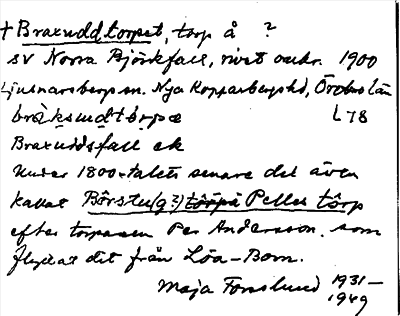 + Braxuddtorpet, torp å ?
sv Norra Björkfall, rivet omkr. 1900
Ljusnarsbergs sn. Nya Kopparbergs hd, Örebro län
bràksudtòrpə L78
Braxuddsfall ek
Under 1800-talets senare del även
kallat Börstu(g?) tôrpä Pelles tôrp
efter torparen Per Andersson som
flyttat dit från Löa-Born.
Maja Forsslund 1931-
1949